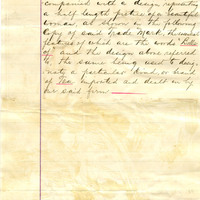 companied with a design representing
a half length picture of a beautiful
woman, as shown in the following
Copy of said Trade Mark, the essential
features of which are the words "
of" and the design above referred
to, the same being used to desig-
nate a particular brand, or kind
of Tea imported and dealt in by
our said firm